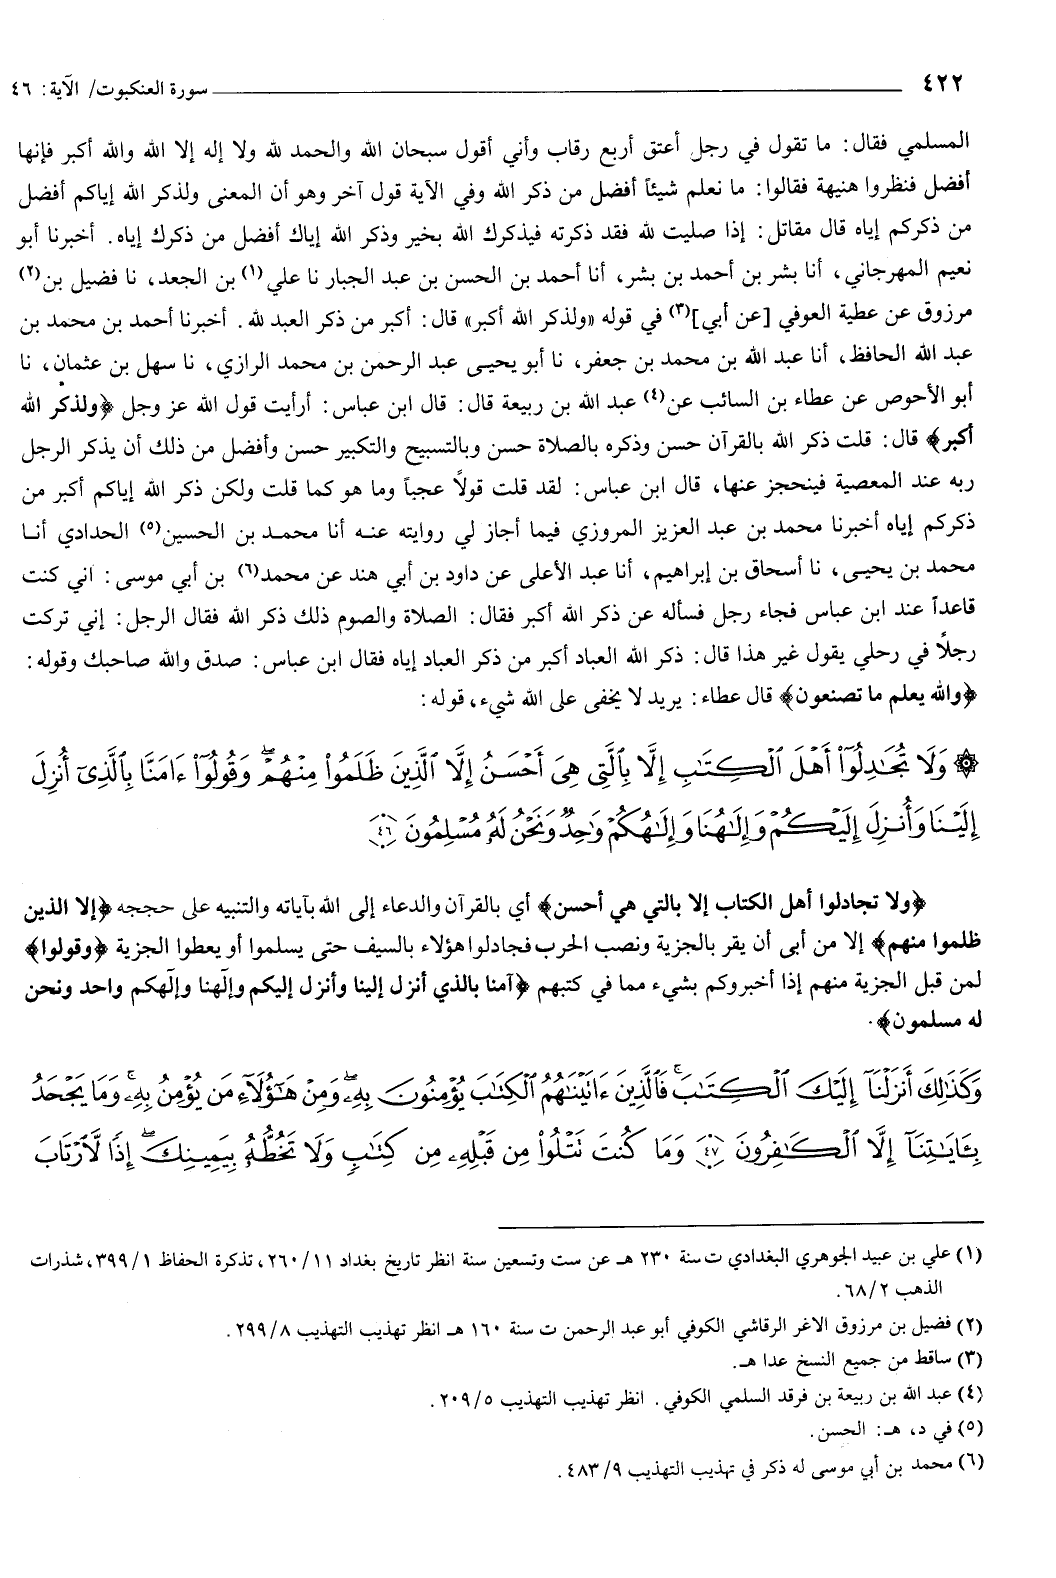 ٤٢٢ ــــــــــ سورة العنكبوت/ الآية: ٤٦
المسلمي فقال: ما تقول في رجل أعتق أربع رقاب وأني أقول سبحان الله والحمد لله ولا إله إلا الله والله أكبر فإنها
أفضل فنظروا هنيهة فقالوا: ما نعلم شيئاً أفضل من ذكر الله وفي الآية قول آخر وهو أن المعنى ولذكر الله إياكم أفضل
من ذكركم إياه قال مقاتل: إذا صليت لله فقد ذكرته فيذكرك الله بخير وذكر الله إياك أفضل من ذكرك إياه. أخبرنا أبو
نعيم المهرجاني، أنا بشر بن أحمد بن بشر، أنا أحمد بن الحسن بن عبد الجبار نا علي(١) بن الجعد، نا فضيل بن(٢)
مرزوق عن عطية العوفي [عن أبي](٣) في قوله «ولذكر الله أكبر» قال: أكبر من ذكر العبد لله. أخبرنا أحمد بن محمد بن
عبد الله الحافظ، أنا عبد الله بن محمد بن جعفر، نا أبو يحيى عبد الرحمن بن محمد الرازي، نا سهل بن عثمان، نا
أبو الأحوص عن عطاء بن السائب عن(٤) عبد الله بن ربيعة قال: قال ابن عباس: أرأيت قول الله عز وجل ﴿ولذكر الله
أكبر﴾ قال: قلت ذكر الله بالقرآن حسن وذكره بالصلاة حسن وبالتسبيح والتكبير حسن وأفضل من ذلك أن يذكر الرجل
ربه عند المعصية فينحجز عنها، قال ابن عباس: لقد قلت قولاً عجباً وما هو كما قلت ولكن ذكر الله إياكم أكبر من
ذكركم إياه أخبرنا محمد بن عبد العزيز المروزي فيما أجاز لي روايته عنه أنا محمد بن الحسين(٥) الحدادي أنا
محمد بن يحيى، نا أسحاق بن إبراهيم، أنا عبد الأعلى عن داود بن أبي هند عن محمد(٦) بن أبي موسى: اني كنت
قاعداً عند ابن عباس فجاء رجل فسأله عن ذكر الله أكبر فقال: الصلاة والصوم ذلك ذكر الله فقال الرجل: إني تركت
رجلاً في رحلي يقول غير هذا قال: ذكر الله العباد أكبر من ذكر العباد إياه فقال ابن عباس: صدق والله صاحبك وقوله:
﴿والله يعلم ما تصنعون﴾ قال عطاء: يريد لا يخفى على الله شيء، قوله:
۞ وَلَا تُجَٰدِلُوٓاْ أَهْلَ ٱلْكِتَٰبِ إِلَّا بِٱلَّتِى هِىَ أَحْسَنُ إِلَّا ٱلَّذِينَ ظَلَمُواْ مِنْهُمْ ۖ وَقُولُوٓاْ ءَامَنَّا بِٱلَّذِىٓ أُنزِلَ
إِلَيْنَا وَأُنزِلَ إِلَيْكُمْ وَإِلَٰهُنَا وَإِلَٰهُكُمْ وَٰحِدٌ وَنَحْنُ لَهُۥ مُسْلِمُونَ ﴿٤٦﴾
﴿ولا تجادلوا أهل الكتاب إلا بالتي هي أحسن﴾ أي بالقرآن والدعاء إلى الله بآياته والتنبيه على حججه ﴿إلا الذين
ظلموا منهم﴾ إلا من أبى أن يقر بالجزية ونصب الحرب فجادلوا هؤلاء بالسيف حتى يسلموا أو يعطوا الجزية ﴿وقولوا﴾
لمن قبل الجزية منهم إذا أخبروكم بشيء مما في كتبهم ﴿آمنا بالذي أنزل إلينا وأنزل إليكم وإلٓهنا وإلٓهكم واحد ونحن
له مسلمون﴾.
وَكَذَٰلِكَ أَنزَلْنَآ إِلَيْكَ ٱلْكِتَٰبَ ۚ فَٱلَّذِينَ ءَاتَيْنَٰهُمُ ٱلْكِتَٰبَ يُؤْمِنُونَ بِهِۦ ۖ وَمِنْ هَٰٓؤُلَآءِ مَن يُؤْمِنُ بِهِۦ ۚ وَمَا يَجْحَدُ
بِـَٔايَٰتِنَآ إِلَّا ٱلْكَٰفِرُونَ ﴿٤٧﴾ وَمَا كُنتَ تَتْلُواْ مِن قَبْلِهِۦ مِن كِتَٰبٍ وَلَا تَخُطُّهُۥ بِيَمِينِكَ ۖ إِذًا لَّٱرْتَابَ
(١) علي بن عبيد الجوهري البغدادي ت سنة ٢٣٠ هـ عن ست وتسعين سنة انظر تاريخ بغداد ٢٦٠/١١، تذكرة الحفاظ ٣٩٩/١، شذرات
الذهب ٦٨/٢.
(٢) فضيل بن مرزوق الاغر الرقاشي الكوفي أبو عبد الرحمن ت سنة ١٦٠ هـ انظر تهذيب التهذيب ٢٩٩/٨.
(٣) ساقط من جميع النسخ عدا هـ.
(٤) عبد الله بن ربيعة بن فرقد السلمي الكوفي. انظر تهذيب التهذيب ٢٠٩/٥.
(٥) في د، هـ: الحسن.
(٦) محمد بن أبي موسى له ذكر في تهذيب التهذيب ٤٨٣/٩.